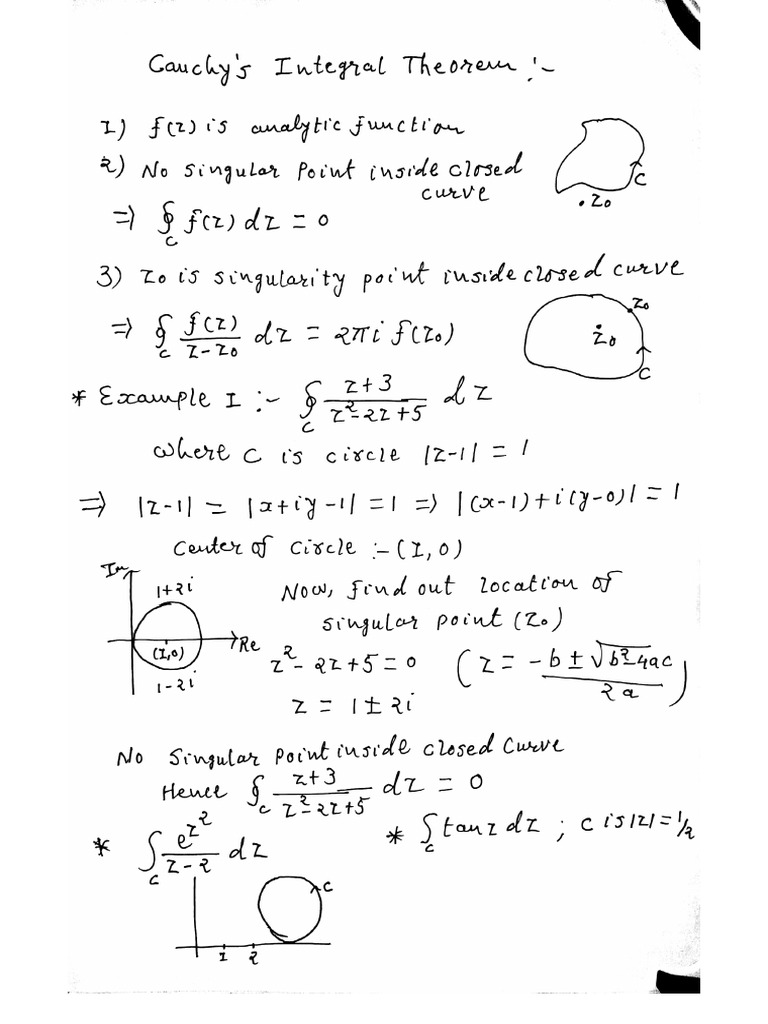 Cauchy's Integral Theorem :-
1) f(z) is analytic function
2) No Singular Point inside closed curve
C
.z₀
⇒ ∮_C f(z) dz = 0
3) z₀ is singularity point inside closed curve
⇒ ∮_C f(z)/(z-z₀) dz = 2πi f(z₀)
z₀
z₀
C
* Example I :- ∮_C (z+3)/(z²-2z+5) dz
where C is circle |z-1| = 1
⇒ |z-1| = |x+iy-1| = 1 ⇒ |(x-1)+i(y-0)| = 1
Center of Circle :- (1,0)
Im
1+2i
(1,0)
Re
1-2i
Now, find out location of
singular point (z₀)
z²-2z+5=0 (z = (-b±√(b²-4ac))/(2a))
z = 1±2i
No Singular Point inside closed Curve
Hence ∮_C (z+3)/(z²-2z+5) dz = 0
* ∫_C e^(z²)/(z-2) dz
* ∫_C tanz dz ; C is |z|=1/2
C
1 2